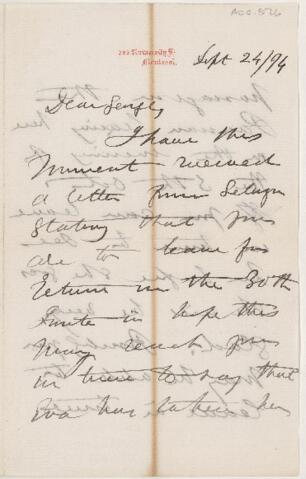 ACC. 526
University St.
Montreal.
Sept 24/94
Dear George,
I have this
moment received
a letter from
stating that you
are to leave for
return on the 30th
I write in hope this
may reach you
in time to say that
Eva has taken her